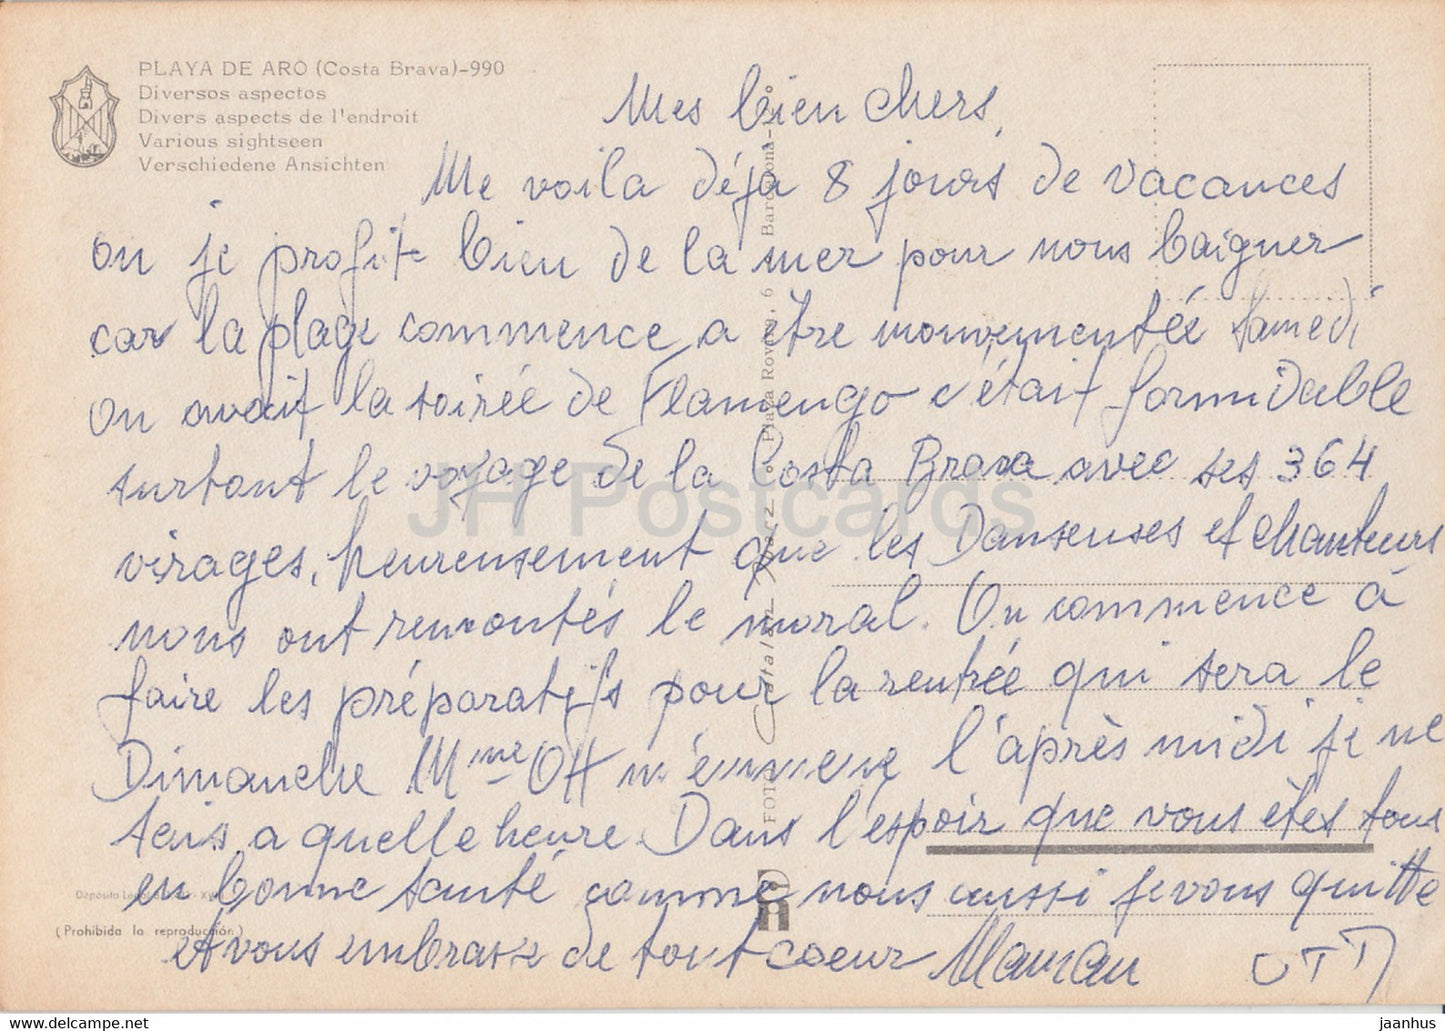 PLAYA DE ARO (Costa Brava)-990
Diversos aspectos
Divers aspects de l'endroit
Various sightseen
Verschiedene Ansichten
Mes bien chers,
Me voila déja 8 jours de vacances
on je profite bien de la mer pour nous baigner
car la plage commence a être mouvementée Samedi
on avait la soirée de Flamengo c'était formidable
surtout le voyage de la Costa Brava avec ses 364
virages, heureusement que les Danseuses et chanteurs
nous ont remontés le moral. On commence à
faire les préparatifs pour la rentrée qui sera le
Dimanche Mme Ott m'emmene l'après midi je ne
sais a quelle heure. Dans l'espoir que vous êtes tous
en bonne santé comme nous aussi je vous quitte
et vous embrasse de tout coeur Maman
FOTO
Plaza Rovira, 6 Barcelona-
Depósito
(Prohibida la reproducción)
JH Postcards
www.delcampe.net
jaanhus